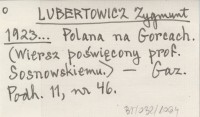 LUBERTOWICZ Zygmunt
1923... Polana na Gorcach.
(Wiersz poświęcony prof.
Sosnowskiemu.) — Gaz.
Podh. 11, nr 46.